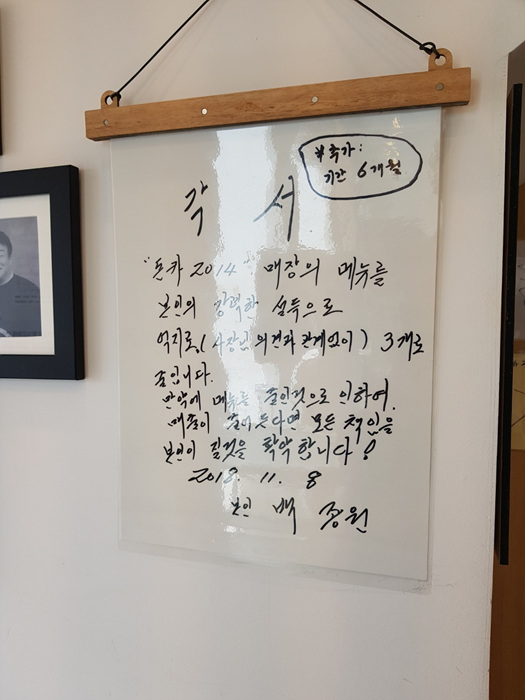 * 추가:
기간 6개월
각 서
"돈카 2014" 매장의 메뉴를
본인의 강력한 설득으로
억지로(사장님 의견과 관계없이) 3개로
줄입니다.
만약에 메뉴를 줄인것으로 인하여,
매출이 줄어든다면 모든 책임을
본인이 질것을 확약합니다!
2018. 11. 8
본인 백종원